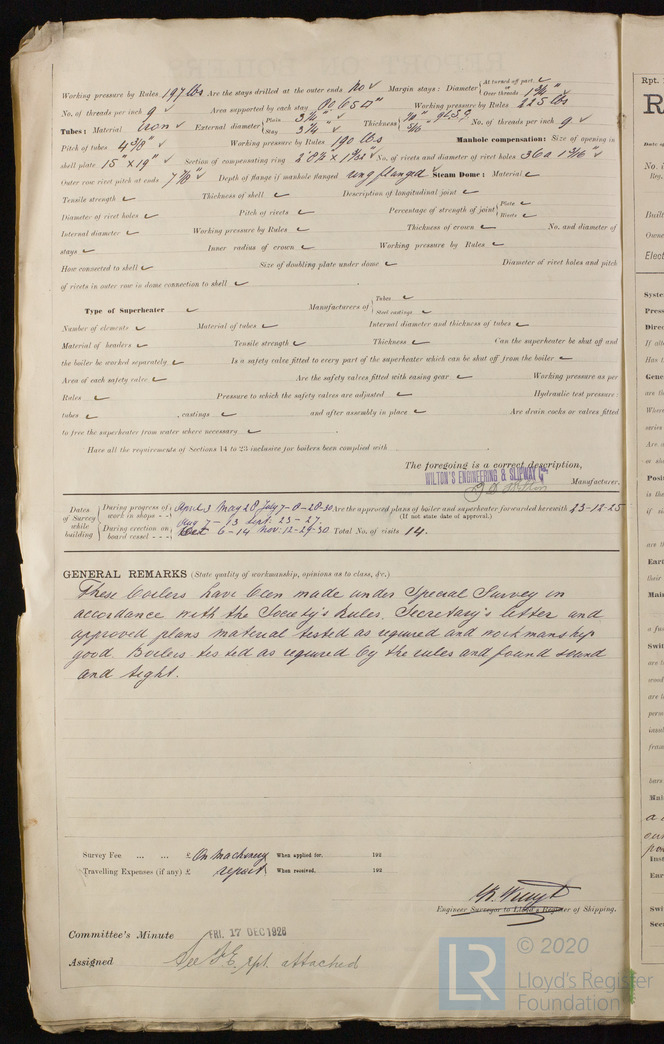 Working pressure by Rules 197 lbs Are the stays drilled at the outer ends No ✓ Margin stays: Diameter { At turned off part, ✓ Over threads
No. of threads per inch 9 ✓ Area supported by each stay Working pressure by Rules 225 lbs
Tubes: Material Iron ✓ External diameter { Plain Stay 3 1/4" ✓ Thickness { No. of threads per inch 9 ✓
Pitch of tubes 4 3/8" ✓ Working pressure by Rules 190 lbs Manhole compensation: Size of opening in
shell plate 15" x 19" ✓ Section of compensating ring No. of rivets and diameter of rivet holes 36 @ 1 3/16" ✓
Outer row rivet pitch at ends 7 7/8" ✓ Depth of flange if manhole flanged ring flanged ✓ Steam Dome: Material ✓
Tensile strength ✓ Thickness of shell ✓ Description of longitudinal joint ✓
Diameter of rivet holes ✓ Pitch of rivets ✓ Percentage of strength of joint { Plate ✓ Rivets ✓
Internal diameter ✓ Working pressure by Rules ✓ Thickness of crown ✓ No. and diameter of
stays ✓ Inner radius of crown ✓ Working pressure by Rules ✓
How connected to shell ✓ Size of doubling plate under dome ✓ Diameter of rivet holes and pitch
of rivets in outer row in dome connection to shell ✓
Type of Superheater ✓ Manufacturers of { Tubes ✓ Steel castings ✓
Number of elements ✓ Material of tubes ✓ Internal diameter and thickness of tubes ✓
Material of headers ✓ Tensile strength ✓ Thickness ✓ Can the superheater be shut off and
the boiler be worked separately ✓ Is a safety valve fitted to every part of the superheater which can be shut off from the boiler ✓
Area of each safety valve ✓ Are the safety valves fitted with easing gear ✓ Working pressure as per
Rules ✓ Pressure to which the safety valves are adjusted ✓ Hydraulic test pressure:
tubes ✓ , castings ✓ and after assembly in place ✓ Are drain cocks or valves fitted
to free the superheater from water where necessary ✓
Have all the requirements of Sections 14 to 23 inclusive for boilers been complied with
The foregoing is a correct description,
WILTON'S ENGINEERING & SLIPWAY Co Manufacturer.
Dates of Survey while building { During progress of work in shops - - April 3 May 28 July 7-8-20-30 Are the approved plans of boiler and superheater forwarded herewith 23-12-25
(If not state date of approval.)
Aug 7-13 Sept. 23-27
During erection on board vessel - - - Oct 6-14 Nov. 12-29-30 Total No. of visits 14.
GENERAL REMARKS (State quality of workmanship, opinions as to class, &c.)
These boilers have been made under Special Survey in
accordance with the Society's Rules, Secretary's letter and
approved plans material tested as required and workmanship
good. Boilers tested as required by the rules and found sound
and tight.
Survey Fee ... ... £ On machinery When applied for. 192
Travelling Expenses (if any) £ report When received. 192
Engineer Surveyor to Lloyd's Register of Shipping.
Committee's Minute FRI. 17 DEC 1926
Assigned See F.E. rpt. attached
LR © 2020
Lloyd's Register
Foundation